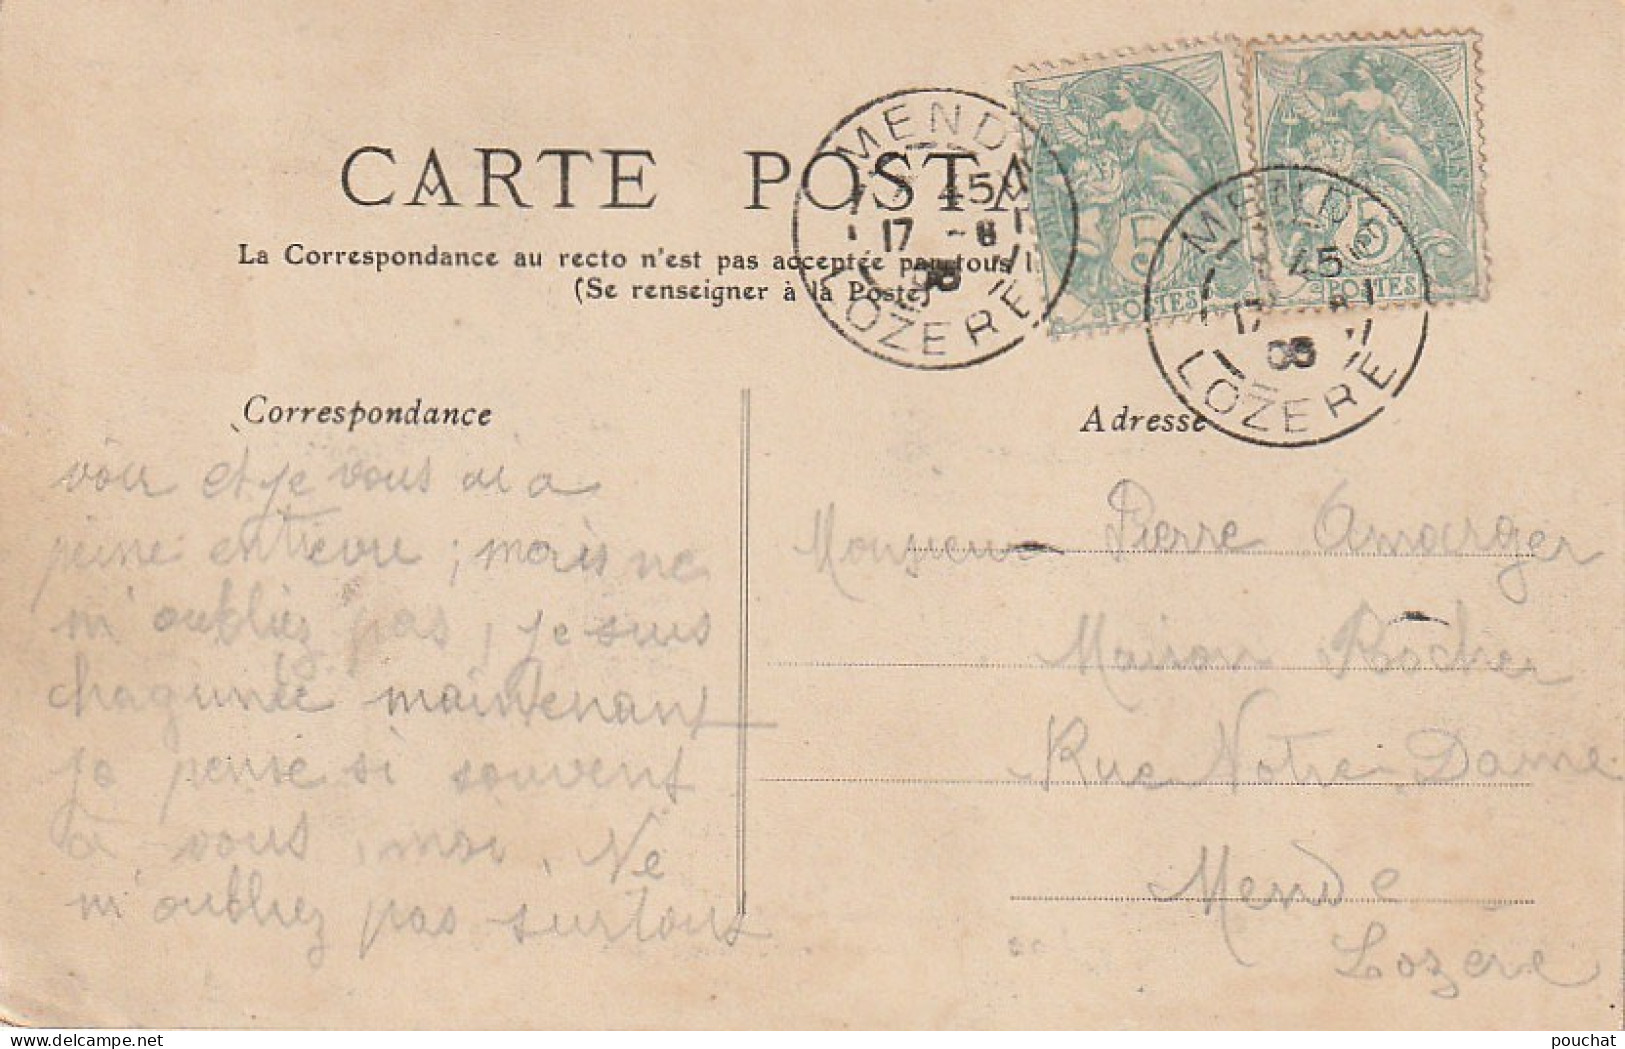 CARTE POSTA
La Correspondance au recto n'est pas acceptée par tous l
(Se renseigner à la Poste)
MENDE
45
17 - 8
LOZERE
5
POSTES
MENDE
45
17 8
LOZERE
5
POSTES
Correspondance
voir et je vous ai a
peine entrevue ; mais ne
m'oubliez pas, je suis
chagrinée maintenant
je pense si souvent
à vous, moi. Ne
m'oubliez pas surtout
Adresse
Monsieur Pierre Amarger
Maison Rocher
Rue Notre-Dame
Mende
Lozère
pouchat